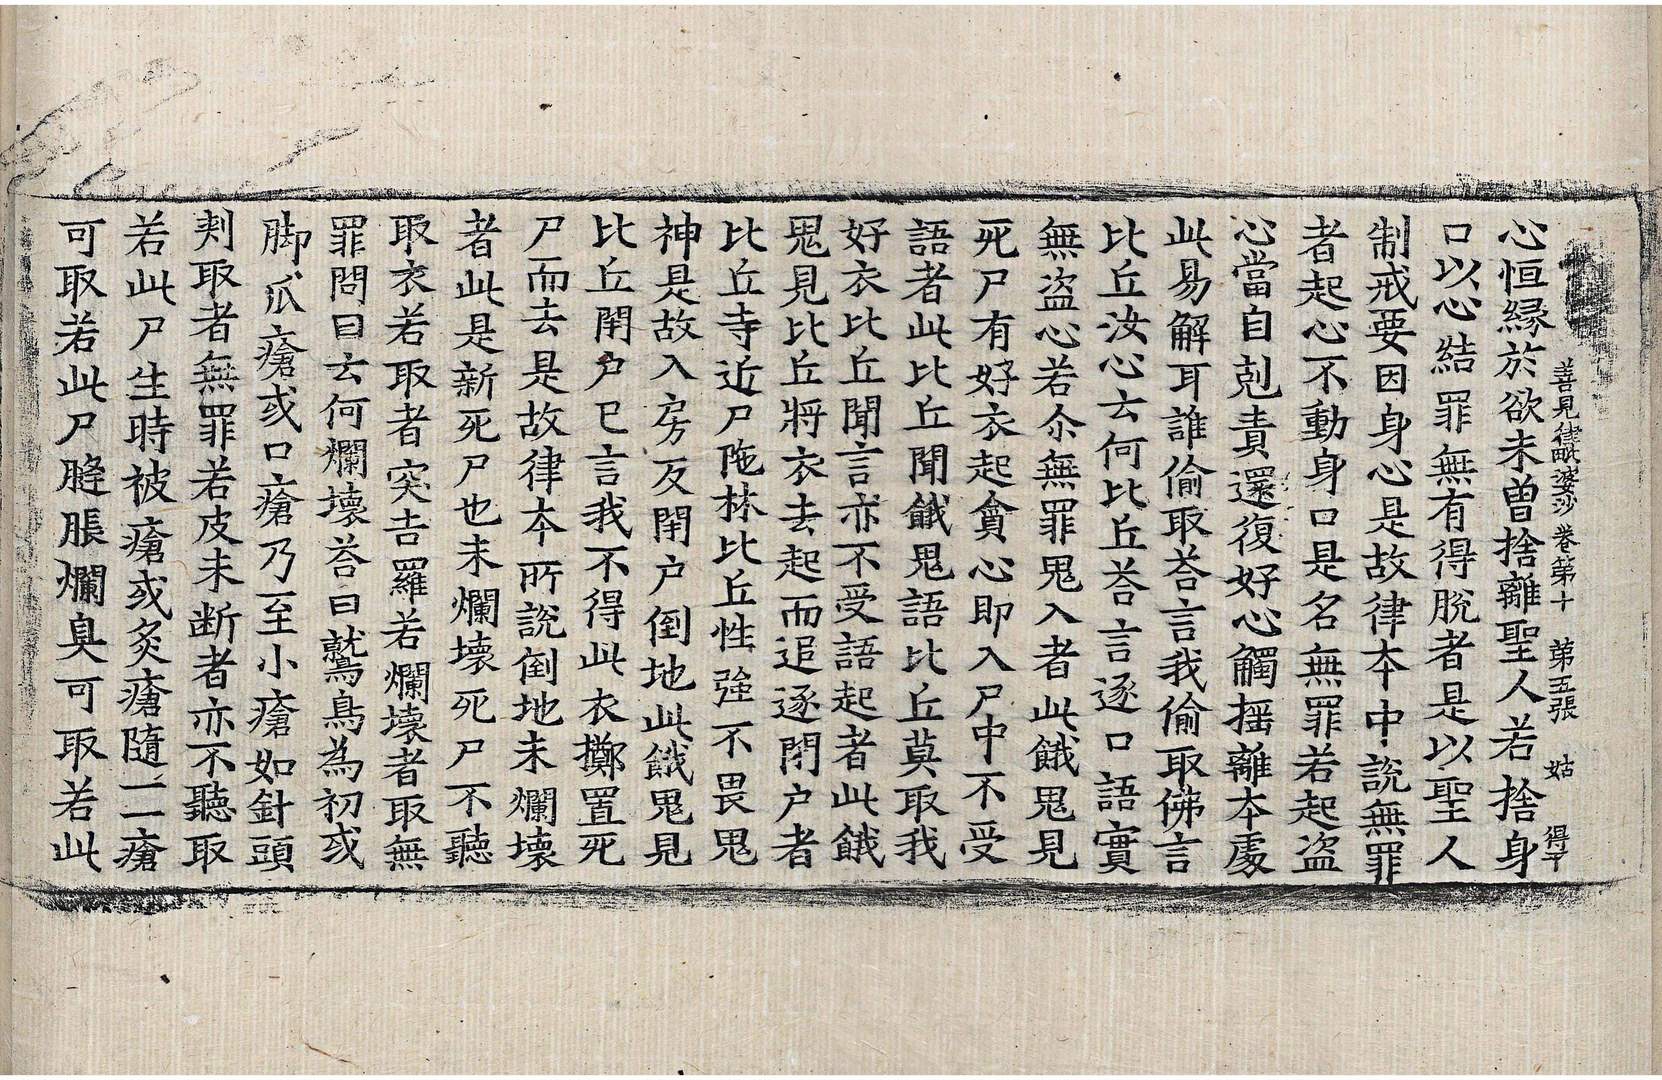 善見律毗婆沙卷第十 第五張 姑 得平
心恒緣於欲未曽捨離聖人若捨身
口以心結罪無有得脫者是以聖人
制戒要因身心是故律本中說無罪
者起心不動身口是名無罪若起盜
心當自剋責還復好心觸揺離本處
此易解耳誰偷取荅言我偷取佛言
比丘汝心云何比丘荅言逐口語實
無盜心若尒無罪鬼入者此餓鬼見
死尸有好衣起貪心即入尸中不受
語者此比丘聞餓鬼語比丘莫取我
好衣比丘聞言亦不受語起者此餓
鬼見比丘將衣去起而追逐閇户者
比丘寺近尸陁林比丘性強不畏鬼
神是故入房反閇户倒地此餓鬼見
比丘閇户已言我不得此衣擲置死
尸而去是故律本所說倒地未爛壞
者此是新死尸也未爛壞死尸不聽
取衣若取者突吉羅若爛壞者取無
罪問曰云何爛壞荅曰鷲鳥為初或
脚爪瘡或口瘡乃至小瘡如針頭
刾取者無罪若皮未断者亦不聽取
若此尸生時被瘡或灸瘡隨一一瘡
可取若此尸膖脹爛臭可取若此